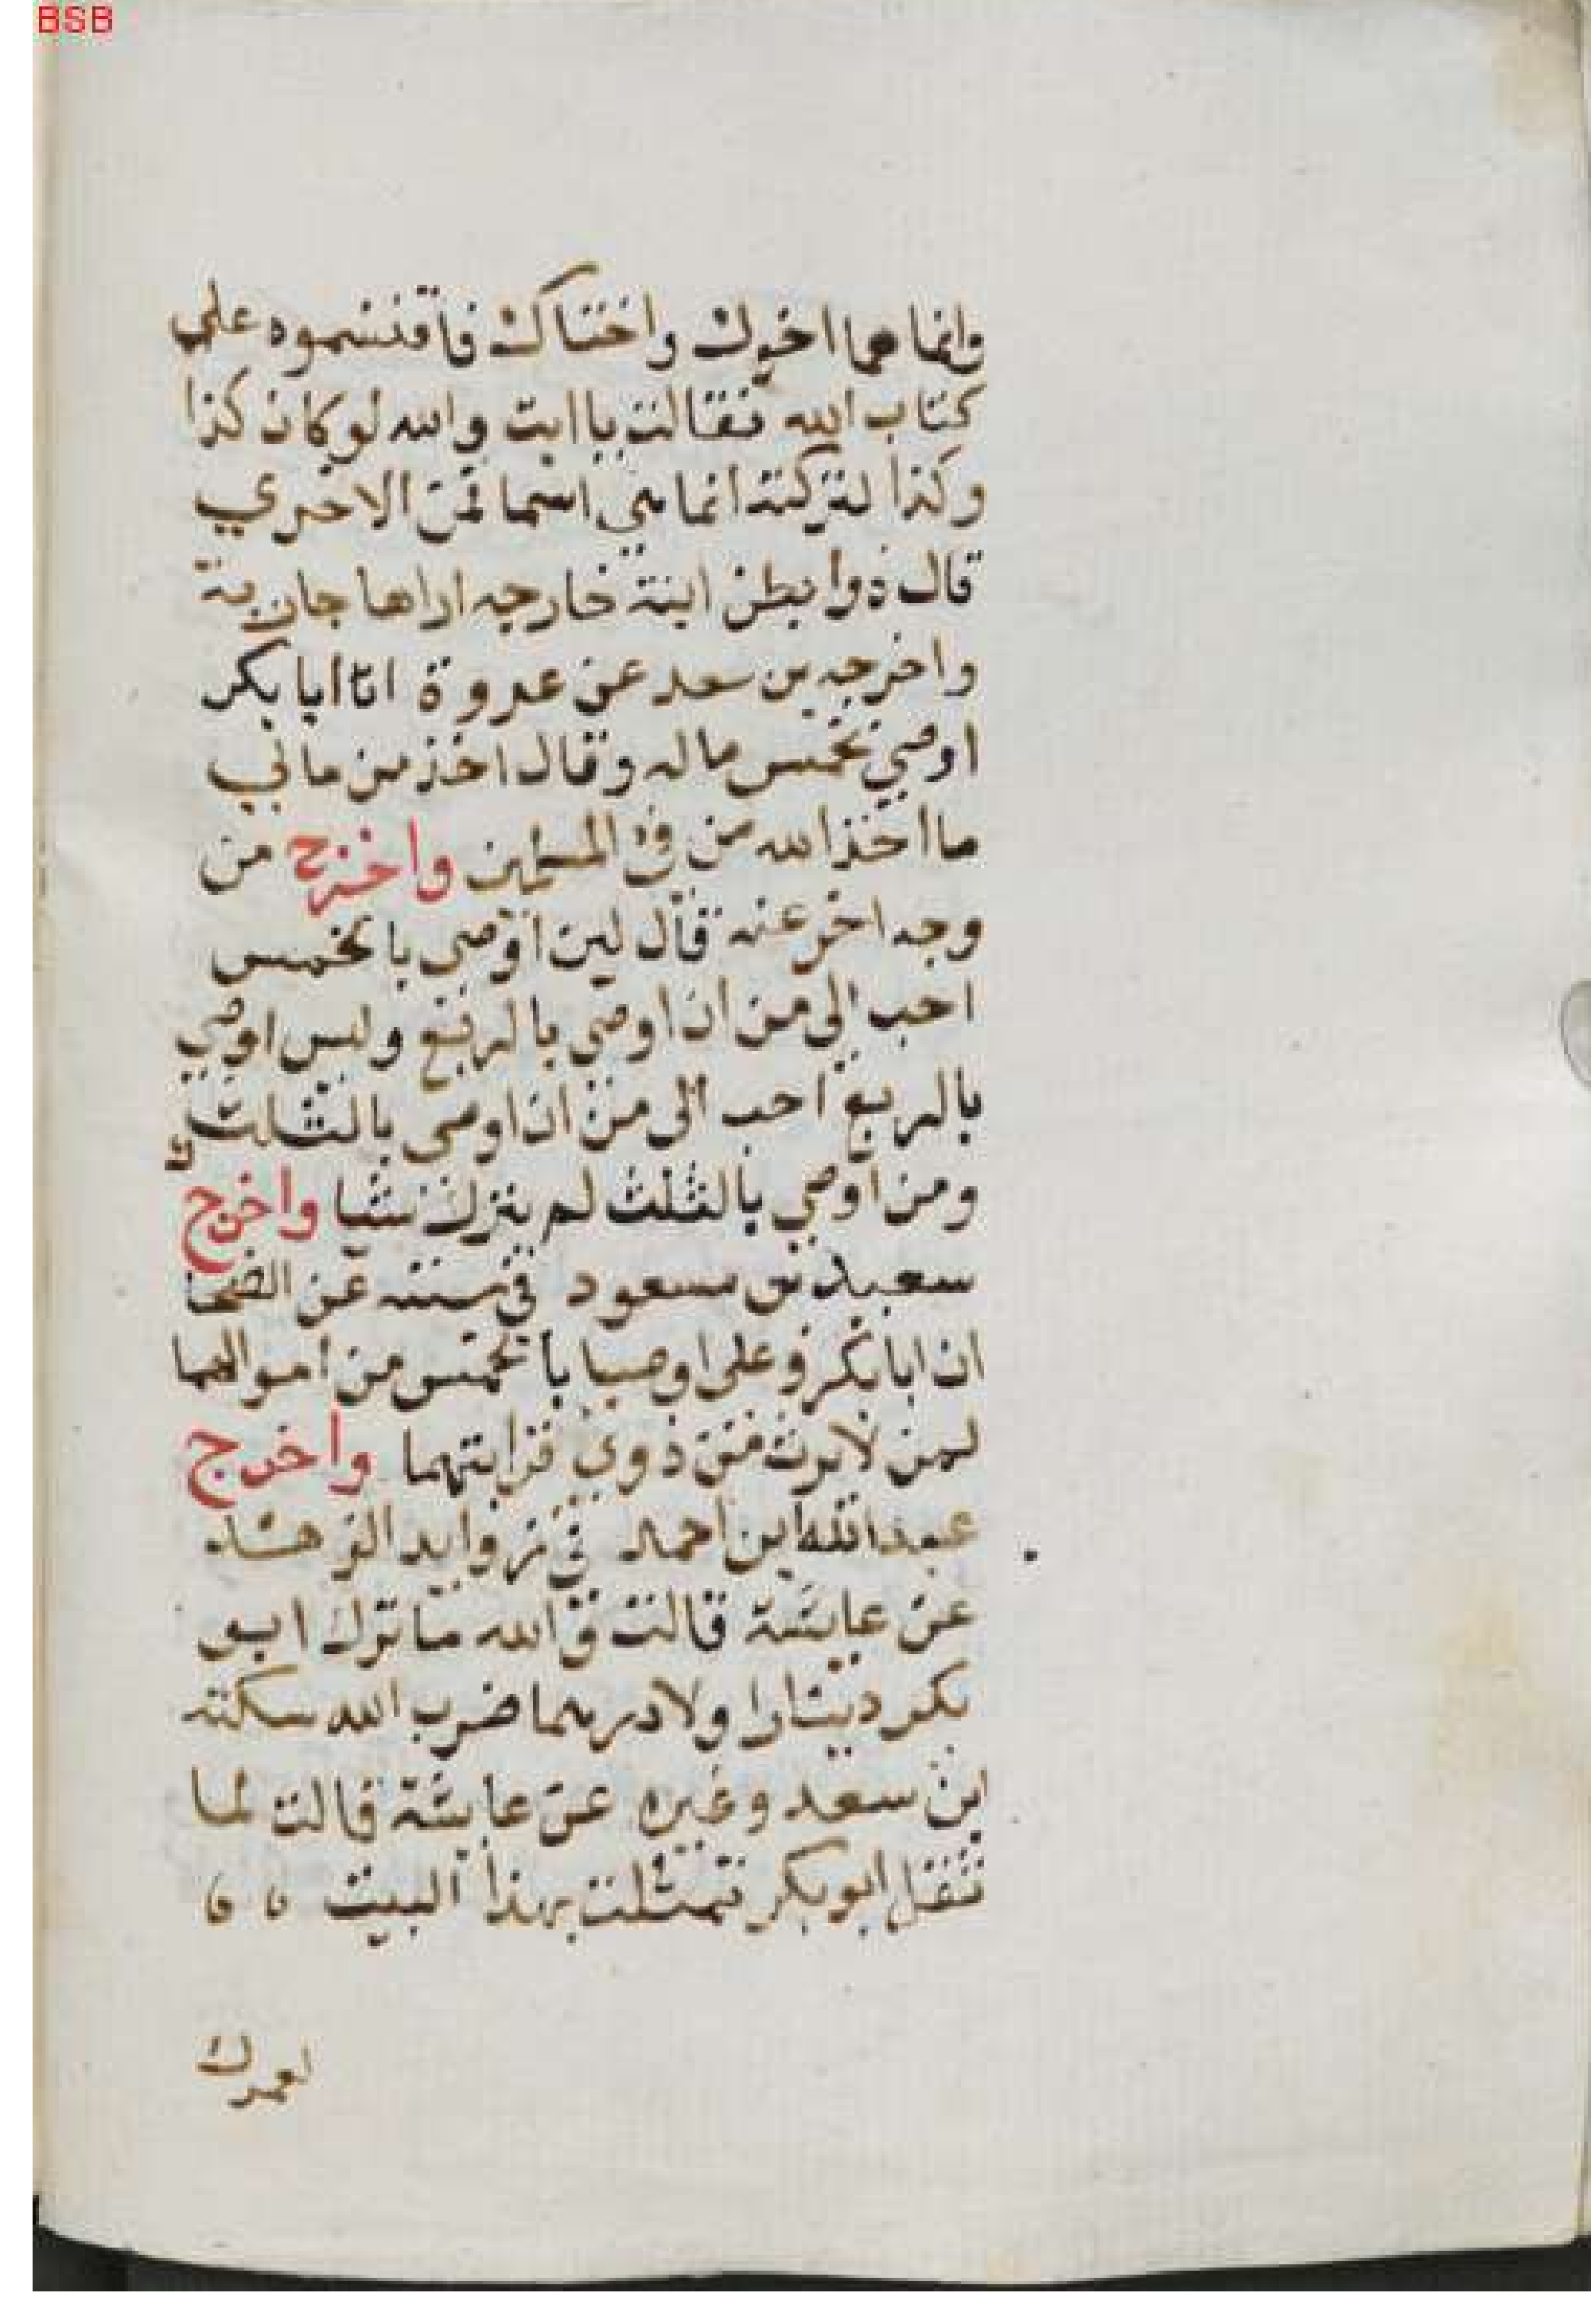 BSB
وانما هما اخوك واختاك فاقتسموه على
كتاب الله فقالت يا ابت والله لو كان كذا
وكذا لتركته انما هي اسما فمن الاخري
قال ذوا بطن ابنة خارجه اراها جارية
واخرجه بن سعد عن عروة ان ابا بكر
اوصي بخمس ماله وقال اخذ من مالي
ما اخذ الله من في المسلمين واخرج من
وجه اخر عنه قال لين اوصي بالخمس
احب الي من ان اوصي بالربع وليس اوصي
بالربع احب الي من ان اوصي بالثلث
ومن اوصي بالثلث لم يترك شيا واخرج
سعيد بن مسعود في سننه عن الضحا
ان ابا بكر وعلى اوصيا بالخمس من اموالهما
لمن لا يرث من ذوي قرابتهما واخرج
عبد الله ابن احمد في زوايد الزهد
عن عايشة قالت والله ما ترك ابو
بكر دينارا ولا درهما ضرب الله سكته
ابن سعد وغيره عن عايشة قالت لما
ثقل ابو بكر تمثلت بهذا البيت
لعمرك